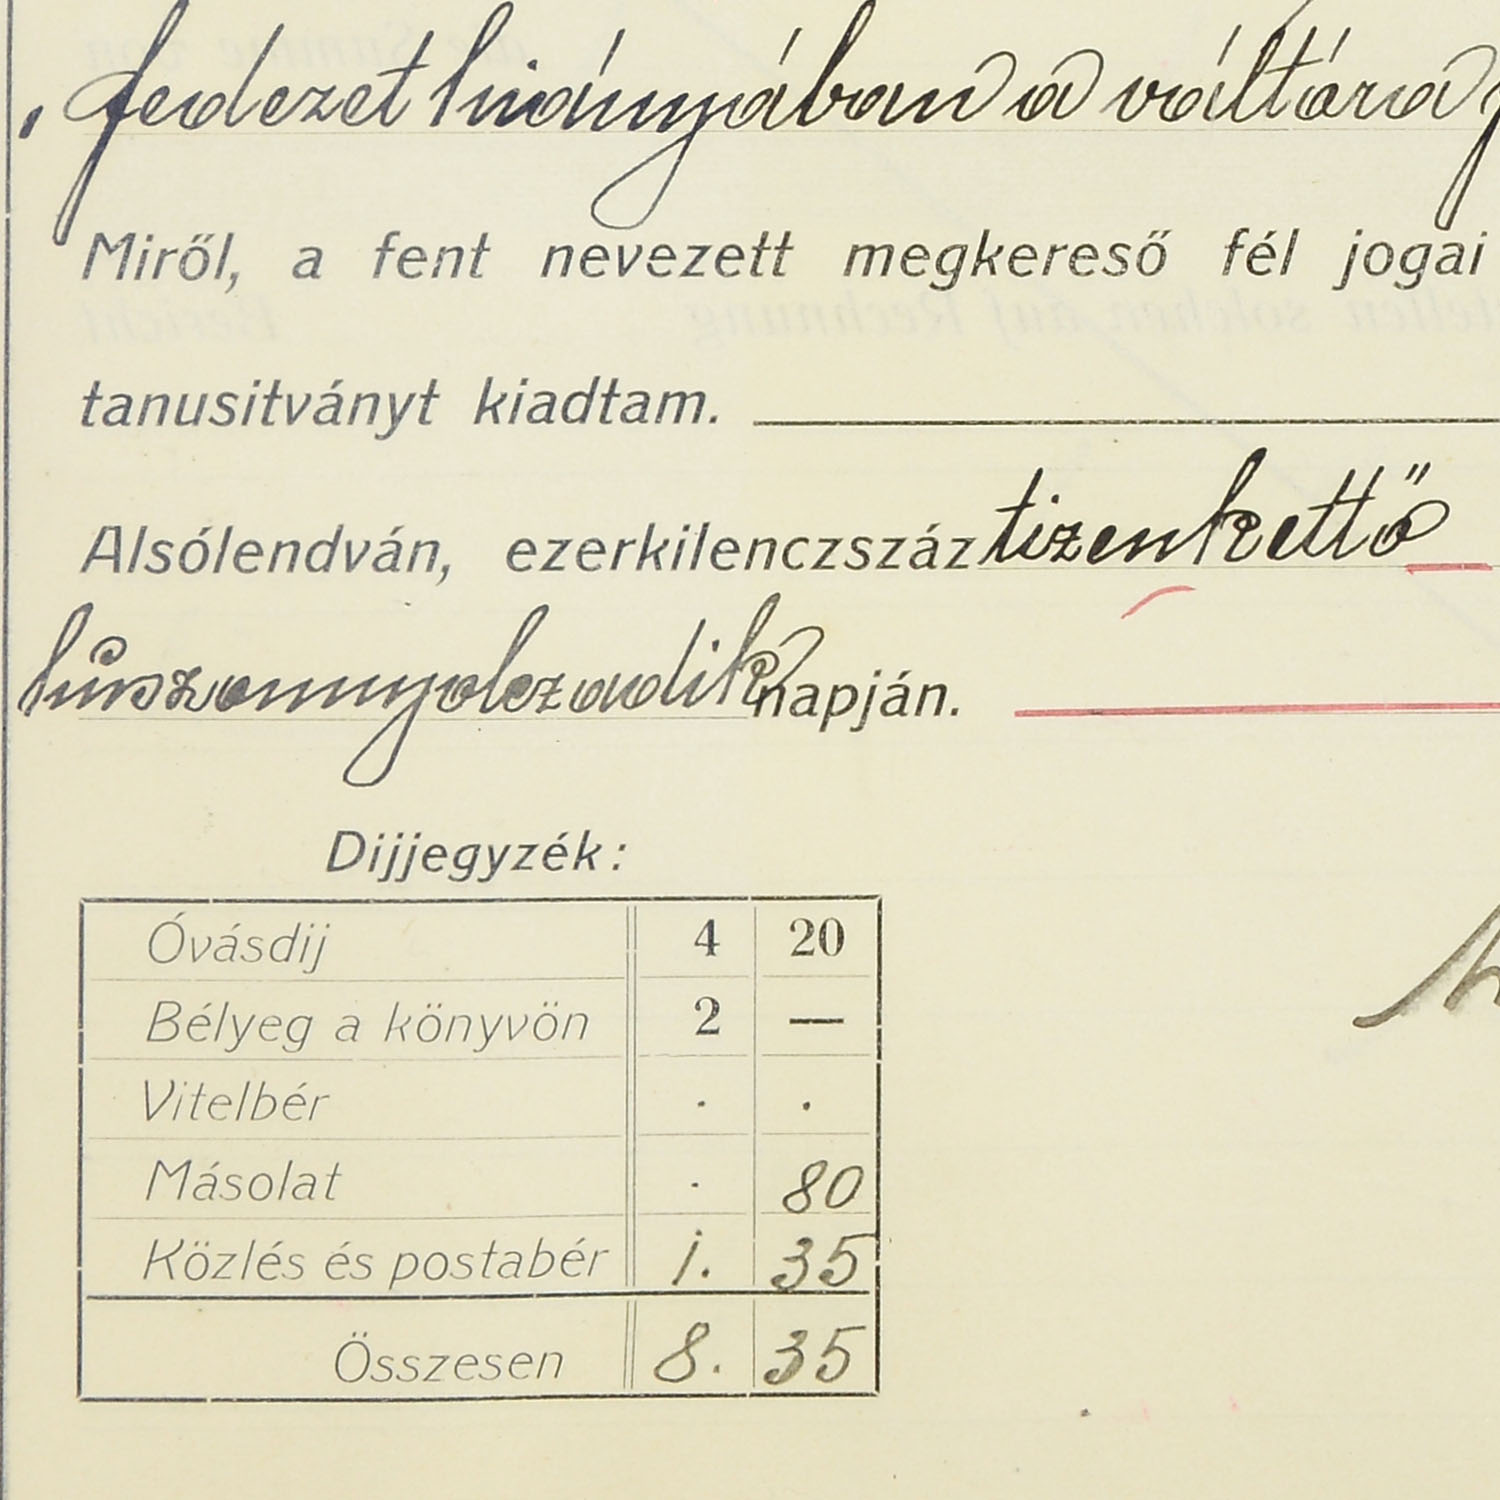 fedezet hiányában a váltóra
Miről, a fent nevezett megkereső fél jogai
tanusitványt kiadtam.
Alsólendván, ezerkilenczszáz tizenkettő
húszonnyolczadik napján.
Dijjegyzék:
Óvásdij 4 20
Bélyeg a könyvön 2 —
Vitelbér . .
Másolat . 80
Közlés és postabér 1. 35
Összesen 8. 35